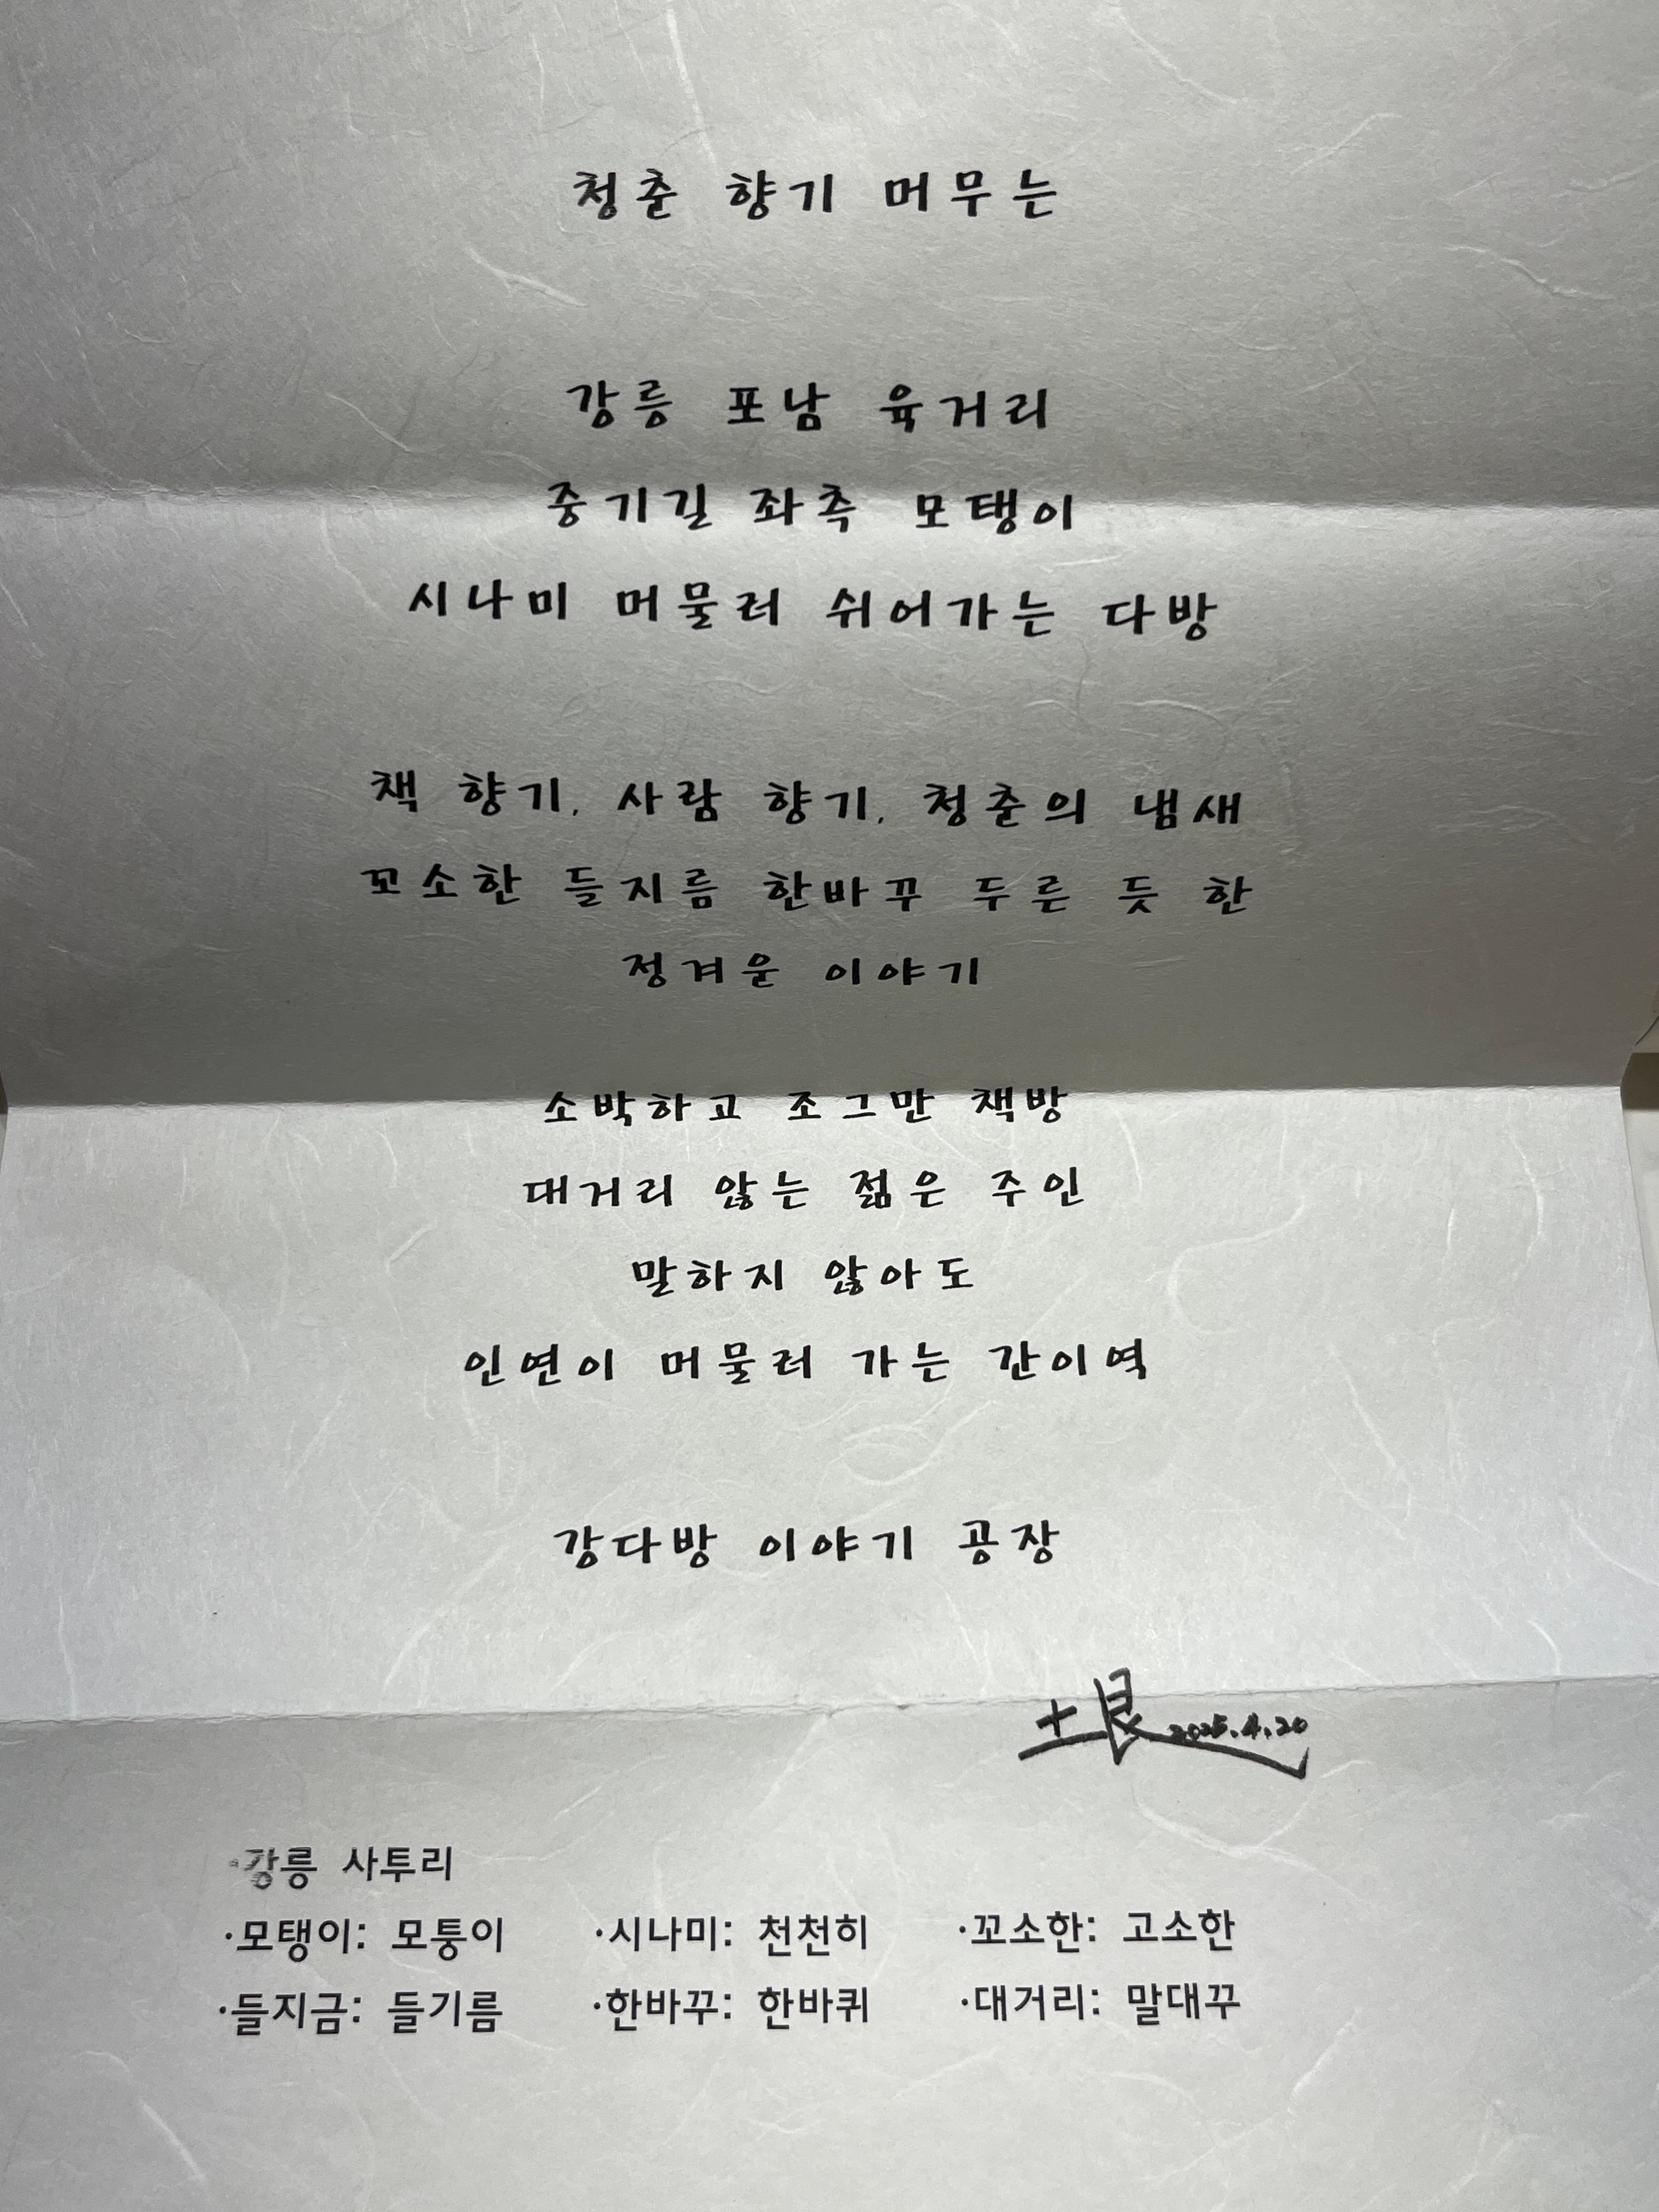 청춘 향기 머무는
강릉 포남 육거리
중기길 좌측 모탱이
시나미 머물러 쉬어가는 다방
책 향기, 사람 향기, 청춘의 냄새
꼬소한 들지름 한바꾸 두른 듯 한
정겨운 이야기
소박하고 조그만 책방
대거리 않는 젊은 주인
말하지 않아도
인연이 머물러 가는 간이역
강다방 이야기 공장
2025.4.20
·강릉 사투리
·모탱이: 모퉁이 ·시나미: 천천히 ·꼬소한: 고소한
·들지금: 들기름 ·한바꾸: 한바퀴 ·대거리: 말대꾸